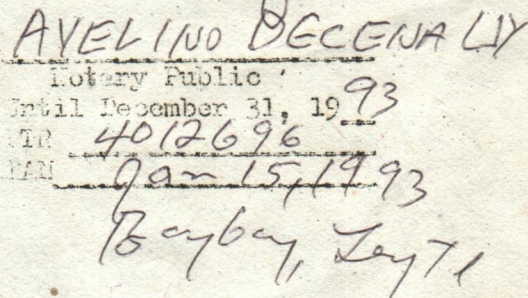 AVELINO DECENA LIY
Notary Public
Until December 31, 1993
PTR 4012696
Jan 15, 1993
Baybay, Leyte